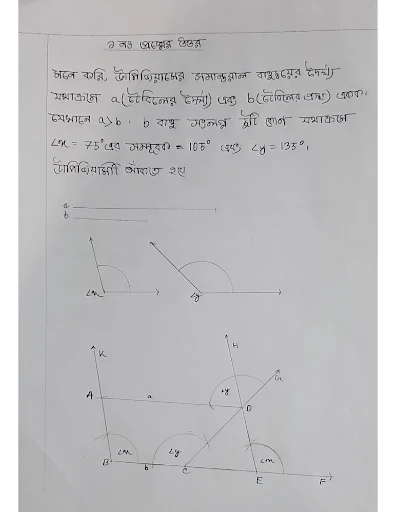 ১ নং প্রশ্নের উত্তর
মনে করি, ট্রাপিজিয়ামের সমান্তরাল বাহুদ্বয়ের দৈর্ঘ্য
যথাক্রমে a (টেবিলের দৈর্ঘ্য) এবং b (টেবিলের প্রস্থ) একক,
যেখানে a>b। b বাহু সংলগ্ন দুটি কোণ যথাক্রমে
∠x = 75° এর সম্পূরক = 105° এবং ∠y = 135°,
ট্রাপিজিয়ামটি আঁকতে হবে
a
b
∠x ∠y
K H
G
∠y
A a D
∠x ∠y ∠x
B b C E F